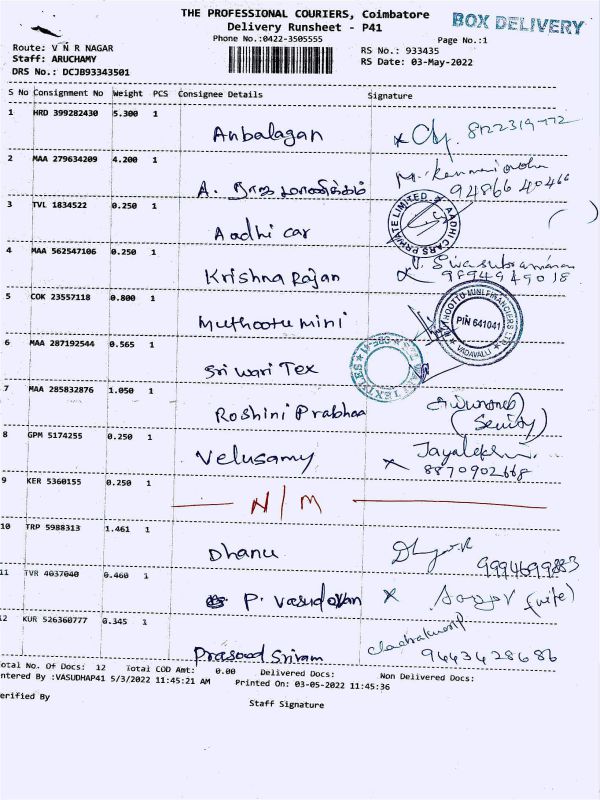 THE PROFESSIONAL COURIERS, Coimbatore
BOX DELIVERY
Delivery Runsheet - P41
Phone No.:0422-3505555
Page No.:1
Route: V N R NAGAR
RS No.: 933435
Staff: ARUCHAMY
RS Date: 03-May-2022
DRS No.: DCJB93343501
S No Consignment No Weight PCS Consignee Details Signature
1 HRD 399282430 5.300 1
Anbalagan
2 MAA 279634209 4.200 1
A.
94866 40466
3 TVL 1834522 0.250 1
Aadhi car
AADHI CARS PRIVATE LIMITED
4 MAA 562547106 0.250 1
Krishna Rajan
V. Sivasubramanian
9894949018
5 COK 23557118 0.800 1
Muthootu mini
PIN 641041
VADAVALLI
6 MAA 287192544 0.565 1
Sri wari Tex
TEXTILES
7 MAA 285832876 1.050 1
Roshini Prabhaa
8 GPM 5174255 0.250 1
Velusamy
8870902668
9 KER 5360155 0.250 1
N/M
10 TRP 5988313 1.461 1
Dhanu
9994699883
11 TVR 4037040 0.460 1
P. Vasudevan
(wife)
12 KUR 526360777 0.345 1
Prasood Sriram
9443428686
otal No. Of Docs: 12 Total COD Amt: 0.00 Delivered Docs: Non Delivered Docs:
ntered By :VASUDHAP41 5/3/2022 11:45:21 AM Printed On: 03-05-2022 11:45:36
erified By
Staff Signature